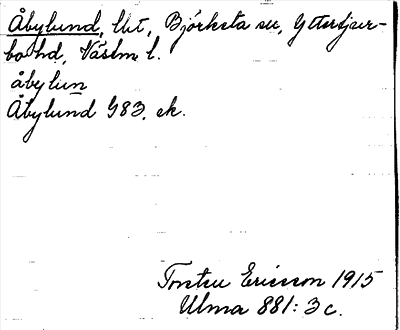 Åbylund, lht, Björksta sn, Yttertjur-
bo hd, Västm l.
åbylun
Åbylund G83. ek.
Torsten Ericsson 1915
Ulma 881:3c.